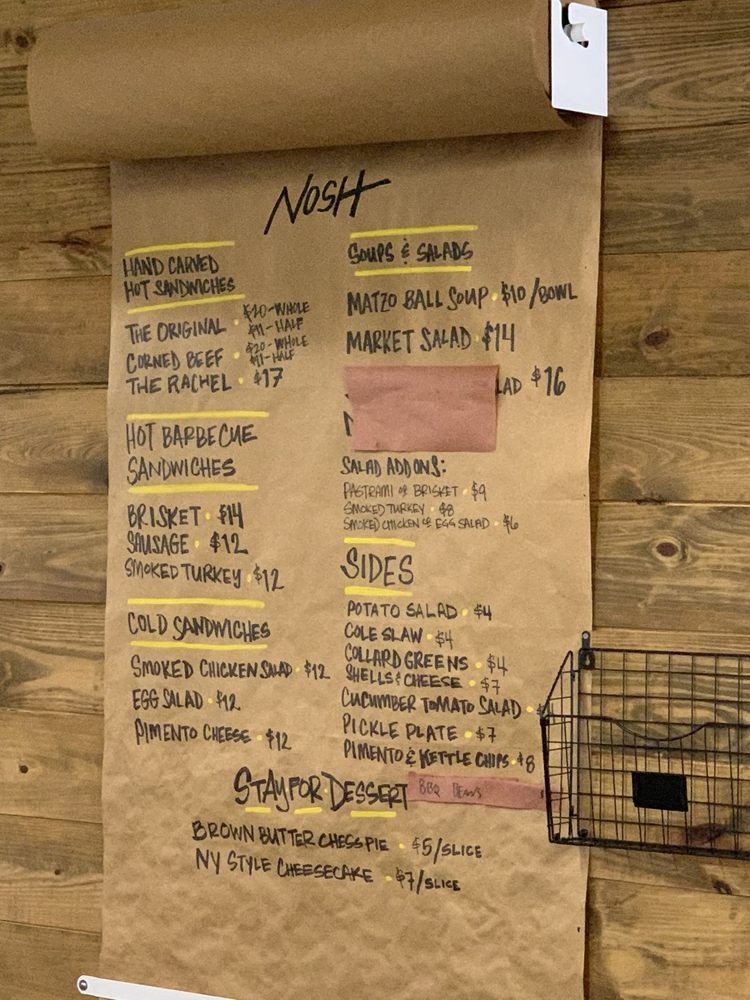 NOSH
HAND CARVED
HOT SANDWICHES
THE ORIGINAL · $20-WHOLE
$11-HALF
CORNED BEEF · $20-WHOLE
$11-HALF
THE RACHEL · $17
HOT BARBECUE
SANDWICHES
BRISKET · $14
SAUSAGE · $12
SMOKED TURKEY · $12
COLD SANDWICHES
SMOKED CHICKEN SALAD · $12
EGG SALAD · $12
PIMENTO CHEESE · $12
SOUPS & SALADS
MATZO BALL SOUP · $10/BOWL
MARKET SALAD · $14
LAD $16
SALAD ADD ONS:
PASTRAMI OR BRISKET · $9
SMOKED TURKEY · $8
SMOKED CHICKEN OR EGG SALAD · $6
SIDES
POTATO SALAD · $4
COLE SLAW · $4
COLLARD GREENS · $4
SHELLS & CHEESE · $7
CUCUMBER TOMATO SALAD ·
PICKLE PLATE · $7
PIMENTO & KETTLE CHIPS · $8
BBQ BEANS
STAY FOR DESSERT
BROWN BUTTER CHESS PIE · $5/SLICE
NY STYLE CHEESECAKE · $7/SLICE